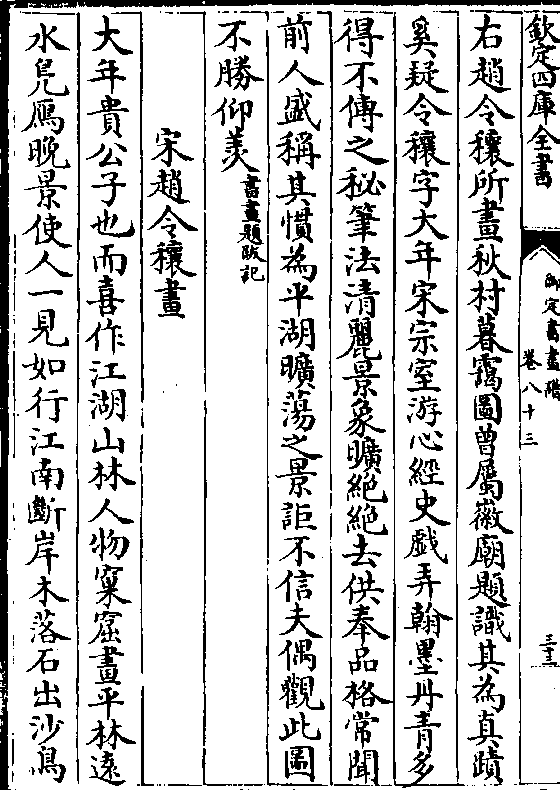 欽定四庫全書
御定書畫譜
卷八十三
三十三
右趙令穰所畫秋村暮靄圖曾屬徽廟題識其為真蹟
奚疑令穰字大年宋宗室游心經史戲弄翰墨丹青多
得不傳之秘筆法清麗景象曠絕絕去供奉品格常聞
前人盛稱其慣為平湖曠蕩之景詎不信夫偶觀此圖
不勝仰羡書畫題跋記
宋趙令穰畫
大年貴公子也而喜作江湖山林人物窠窟畫平林遠
水鳧鴈晚景使人一見如行江南斷岸木落石出沙鳥